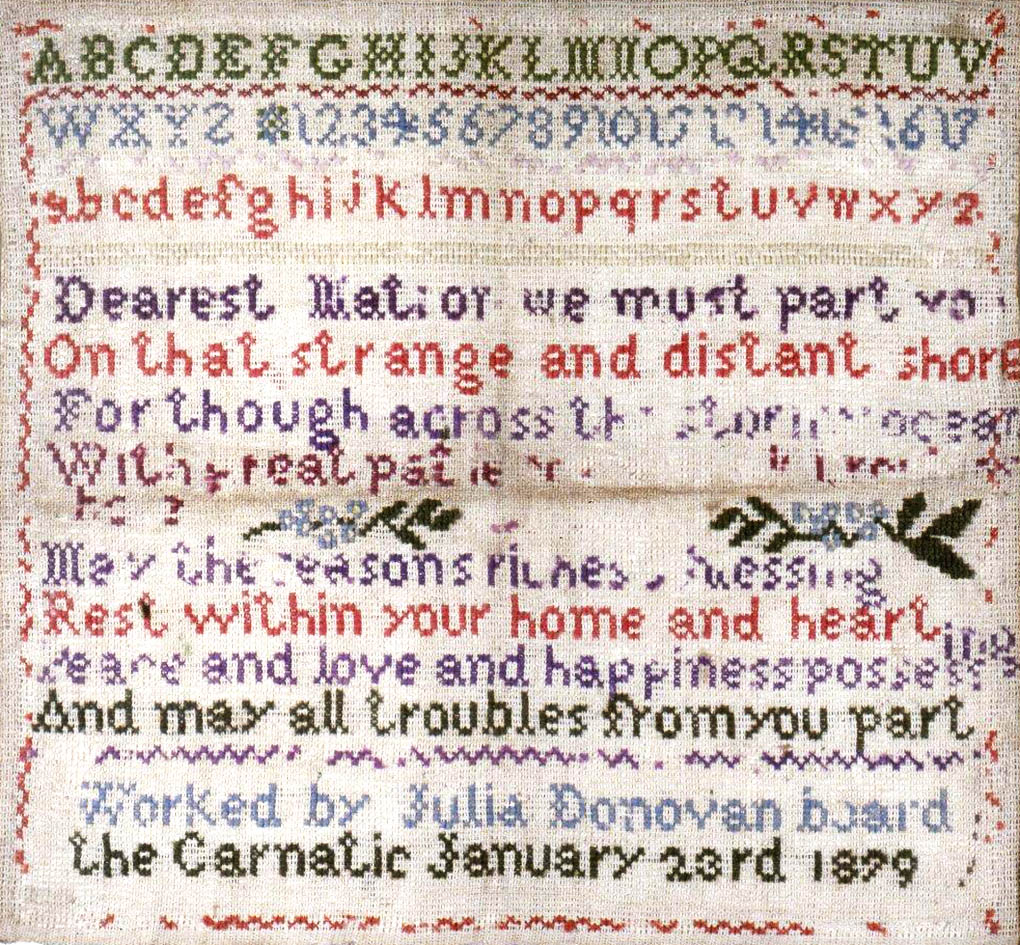 ABCDEFGHIJKLMNOPQRSTUV
WXYZ 1 2 3 4 5 6 7 8 9 10 13 14 15 16 17
abcdefghijklmnopqrstuvwxyz
Dearest Matron we must part
On that strange and distant shore
For though across the stormy ocean
With real
be ?
May the seasons riches blessing
Rest within your home and heart
Peace and love and happiness possessing
And may all troubles from you part
Worked by Julia Donovan board
the Carnatic January 23rd 1879